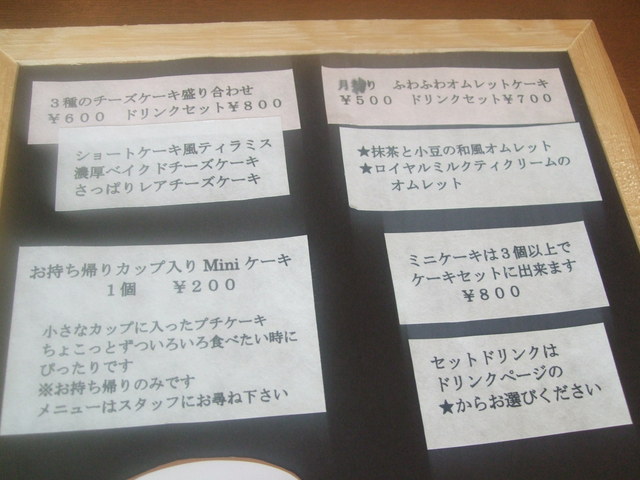 3種のチーズケーキ盛り合わせ
¥600 ドリンクセット¥800
ショートケーキ風ティラミス
濃厚ベイクドチーズケーキ
さっぱりレアチーズケーキ
お持ち帰りカップ入りMiniケーキ
1個 ¥200
小さなカップに入ったプチケーキ
ちょこっとずついろいろ食べたい時に
ぴったりです
※お持ち帰りのみです
メニューはスタッフにお尋ね下さい
月 り ふわふわオムレットケーキ
¥500 ドリンクセット¥700
★抹茶と小豆の和風オムレット
★ロイヤルミルクティクリームの
オムレット
ミニケーキは3個以上で
ケーキセットに出来ます
¥800
セットドリンクは
ドリンクページの
★からお選びください